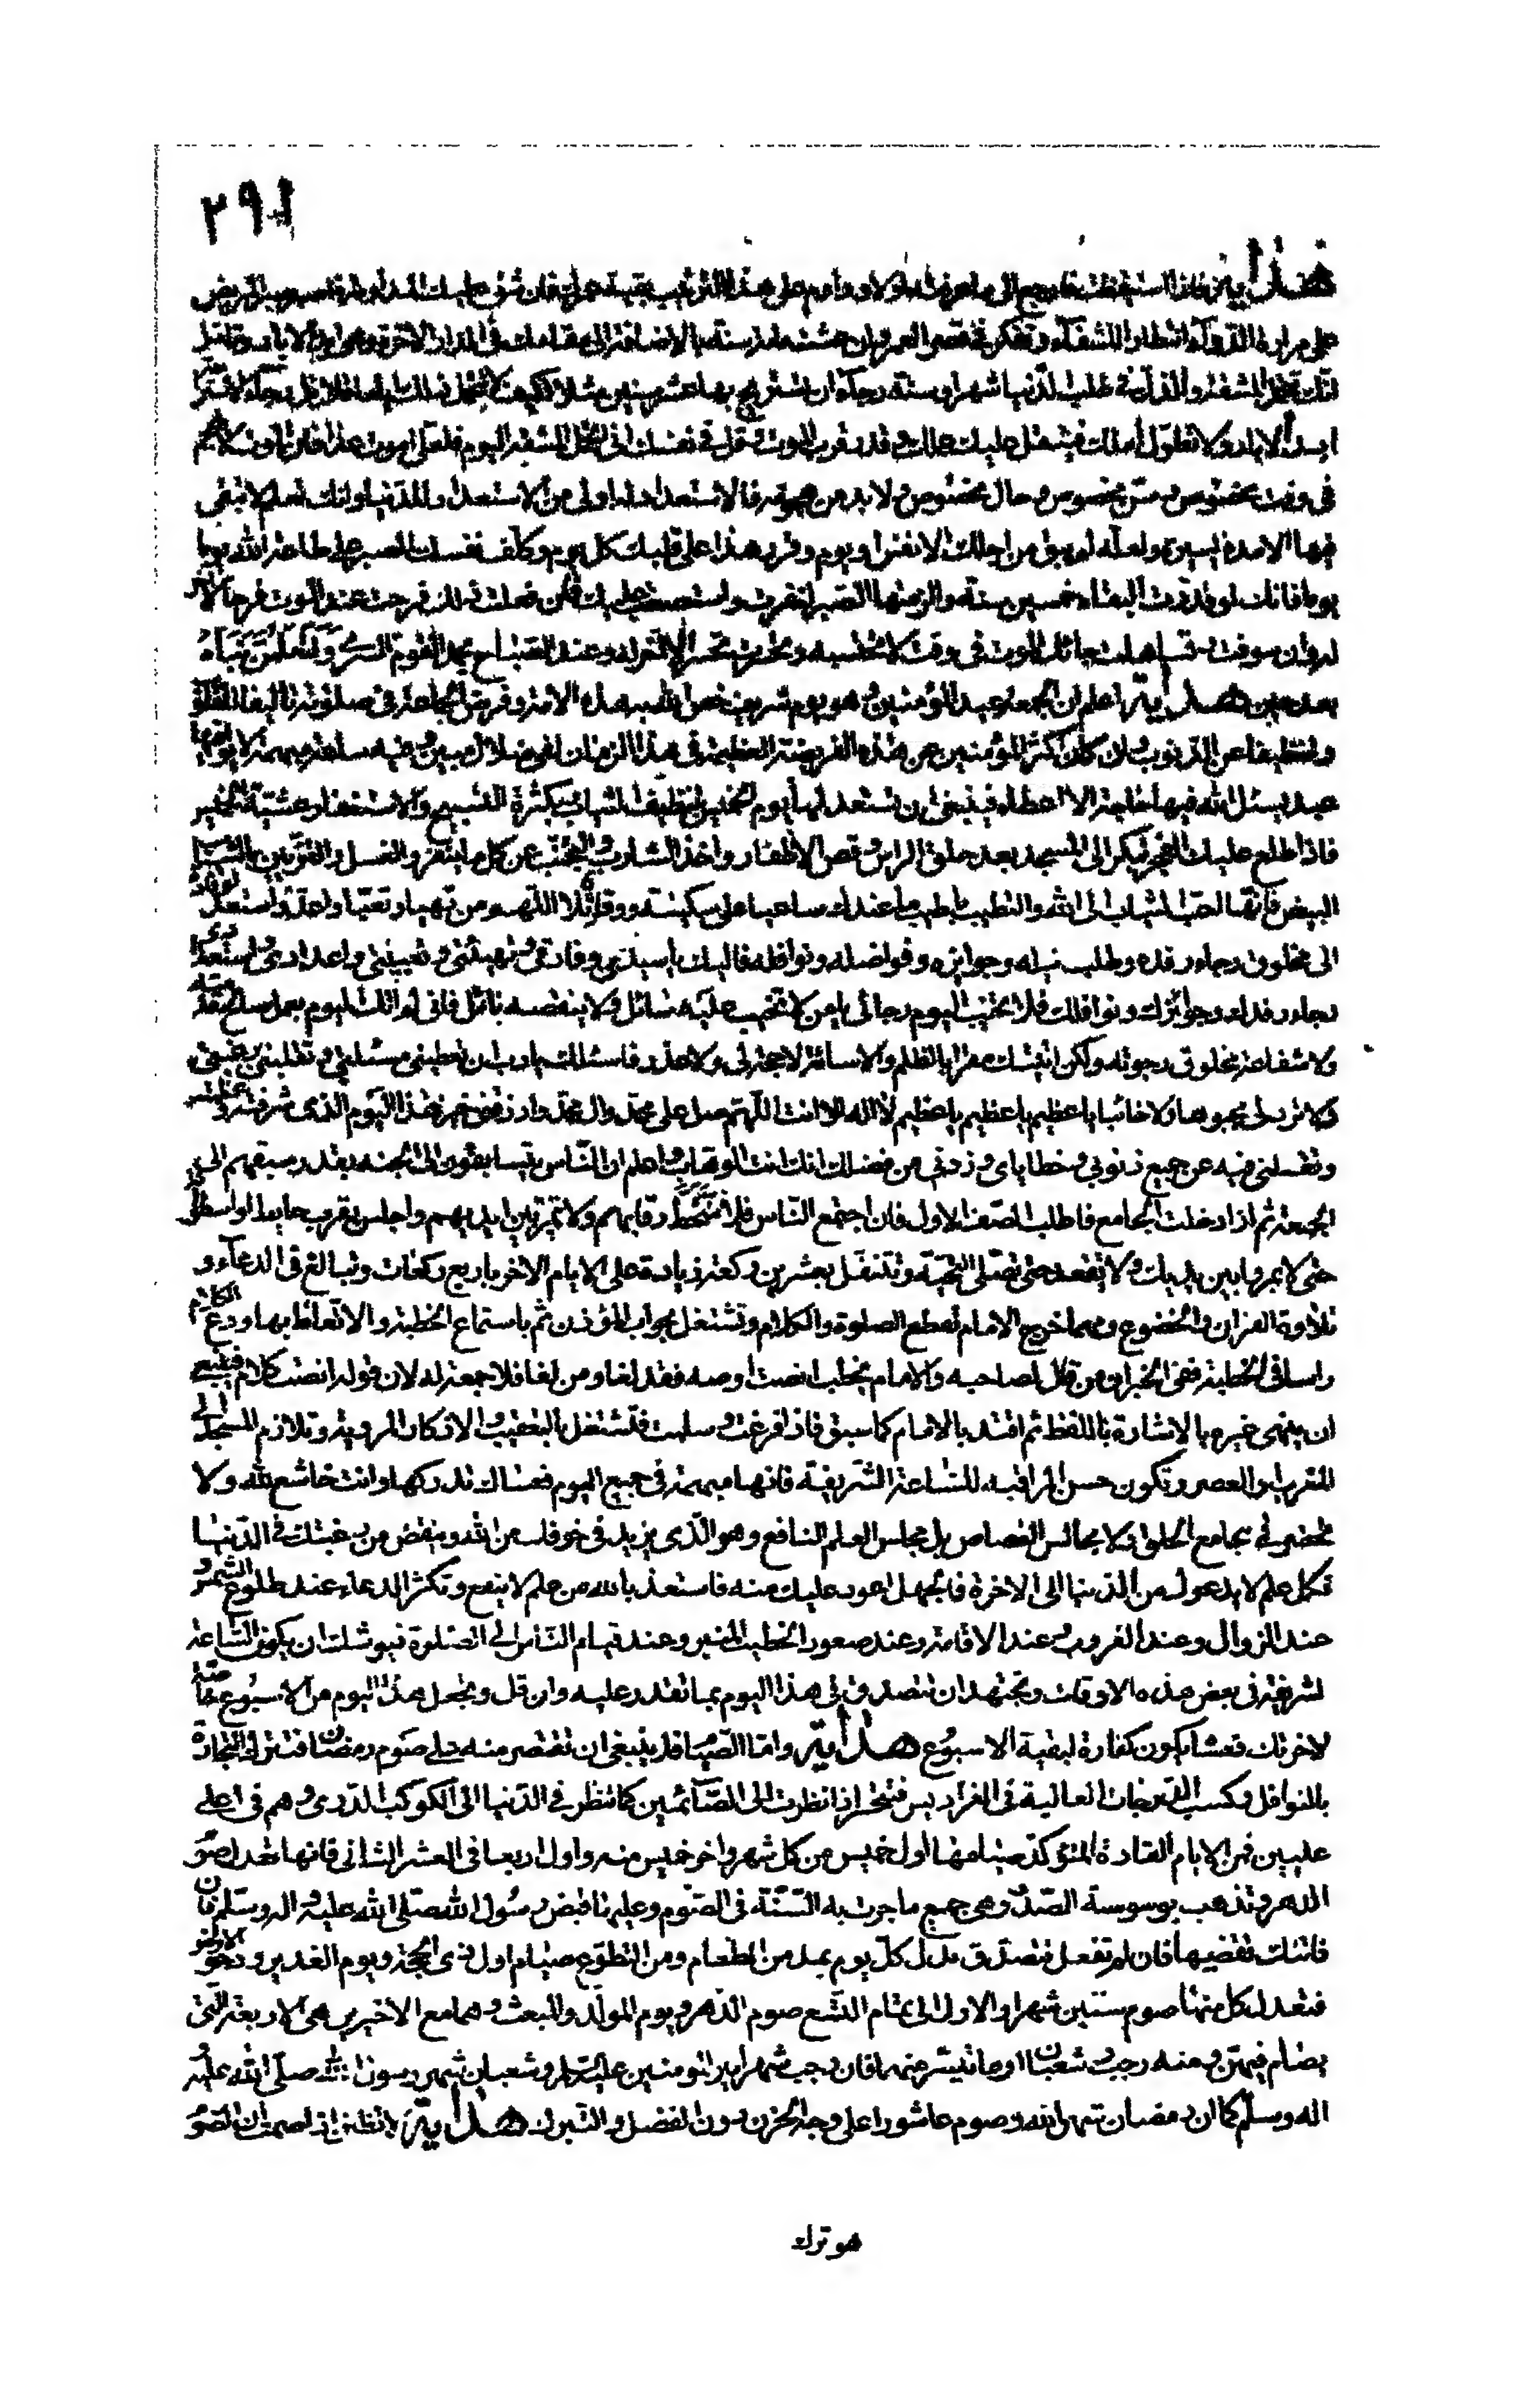 ٢٩١
هداية فاذا استيقظت فارجع الى ما عرفناه اولا وداوم على هذا الترتيب بقية عمرك فان شق عليك المداومة فاصبر صبر المريض
على مرارة الدوآء انتظارا للشفآء وتفكر فى قصر العمر وان عشت مائة سنة بالاضافة الى مقامك فى الدار الاخرة وهى ابد الاباد وتامل
انك تتحمل المشقة والذل فى طلب الدنيا شهرا وسنة رجآء ان تستريح بها عشر سنين مثلا فكيف لا تتحمل ذلك اياما قلائل رجآء الاستراحة
ابد الاباد ولا تطول املك فيثقل عليك عملك وقدر قرب الموت وقل فى نفسك انى اتحمل المشقة اليوم فلعلى اموت غدا فان الموت لا يهجم
فى وقت مخصوص وسن مخصوص وحال مخصوص ولا بد من هجومه فالاستعداد له اولى من الاستعداد للدنيا وانك تعلم لا تبقى
فيها الا مدة يسيرة ولعله لم يبق من اجلك الا نفس او يوم وقرر هذا على قلبك كل يوم وكلف نفسك الصبر على طاعة الله يوما
يوما فانك لو قدرت البقاء خمسين سنة والزمتها الصبر نفرت واستصعبت عليك فان فعلت ذلك فرحت عند الموت فرحا لا اخر
له وان سوفت وتساهلت جائك الموت فى وقت لا تحتسبه وتحسرت تحسرا لا اخر له وعند الصباح يحمد القوم السرى ولتعلمن نباه
بعد حين هداية اعلم ان الجمعة عيد المؤمنين وهو يوم شريف خص الله به هذه الامة وفرض الجماعة فى صلوته تاليفا للقلوب
وتنظيفا عن الذنوب وان كان اكثر المؤمنين عن هذه الفريضة العظيمة فى هذا الزمان لفى ضلال مبين وفيه ساعة مبهمة لا يوافقها
عبد يسئل الله فيها حاجة الا اعطاه فينبغى ان تستعد لها يوم الخميس بتنظيف الثياب وبكثرة التسبيح والاستغفار عشية الخميس
فاذا طلع عليك الفجر فبكر الى المسجد بعد حلق الراس وقص الاظفار واخذ الشارب والتجنب عن كل ما ينفر والغسل والتزين بالثياب
البيض فانها احب الثياب الى الله والتطيب باطيب ما عندك ساعيا على سكينة ووقار قائلا اللهم ومن تهيا وتعبا واعد واستعد لوفادة
الى مخلوق رجاء رفده وطلب نيله وجوائزه وفواضله ونوافله فاليك يا سيدى وفادتى وتهيئتى وتعبيتى واعدادى واستعدادى
رجاء رفدك وجوائزك ونوافلك فلا تخيب اليوم رجائى يا من لا يخيب عليه سائل ولا ينقصه نائل فانى لم اتك اليوم بعمل صالح قدمته
ولا شفاعة مخلوق رجوته ولكن اتيتك مقرا بالظلم والاسائة لا حجة لى ولا عذر فاسئلك يا رب ان تعطينى مسئلتى وتقلبنى برغبتى
ولا تردنى مجبوها ولا خائبا يا عظيم يا عظيم يا عظيم لا اله الا انت اللهم صل على محمد وال محمد وارزقنى خير هذا اليوم الذى شرفته وعظمته
وتغسلنى فيه عن جميع ذنوبى وخطاياى وزدنى من فضلك انك انت الوهاب واعلم ان الناس يتسابقون الى الجنة بقدر سبقهم الى
الجمعة ثم اذا دخلت الجامع فاطلب الصف الاول فان اجتمع الناس فلا تتخط رقابهم ولا تمر بين ايديهم واجلس بقرب حايط او اسطوانة
حتى لا يمروا بين يديك ولا تقعد حتى تصلى التحية وتتنفل بعشرين ركعة زيادة على الايام الاخر باربع ركعات وتبالغ فى الدعآء و
تلاوة القران والخضوع ومهما خرج الامام تقطع الصلوة والكلام وتشتغل بجواب المؤذن ثم باستماع الخطبة والاتعاظ بها ودع الكلام
راسا فى الخطبة ففى الخبران من قال لصاحبه والامام يخطب انصت او صه فقد لغا ومن لغا فلا جمعة له لان قوله انصت كلام فينبغى
ان ينهى غيره بالاشارة لا باللفظ ثم اقتد بالامام كما سبق فاذا فرغت وسلمت فتشتغل بالتعقيب والاذكار المروية وتلازم المسجد الى
المغرب او العصر وتكون حسن المراقبة للساعة الشريفة فانها مبهمة فى جميع اليوم فعساك تدركها وانت خاشع لله ولا
تحضر فى مجامع الحلق ولا مجالس القصاص بل مجلس العلم النافع وهو الذى يزيد فى خوفك من الله وينقص من رغبتك فى الدنيا
فكل علم لا يدعوك من الدنيا الى الاخرة فالجهل اعود عليك منه فاستعذ بالله من علم لا ينفع وتكثر الدعاء عند طلوع الشمس و
عند الزوال وعند الغروب وعند الاقامة وعند صعود الخطيب المنبر وعند قيام الناس الى الصلوة فيوشك ان يكون الساعة
الشريفة فى بعض هذه الاوقات وتجتهد ان تتصدق فى هذا اليوم بما تقدر عليه وان قل وتجعل هذا اليوم من الاسبوع خاصة
لاخرتك فعسا يكون كفارة لبقية الاسبوع هداية واما الصيام فلا ينبغى ان تقتصر منه على صوم رمضان فتترك التجارة
بالنوافل وكسب الدرجات العالية فى الفراديس فتتحسر اذا نظرت الى الصآئمين كما تنظر فى الدنيا الى الكوكب الدرى وهم فى اعلى
عليين فمن الايام القادة المؤكد صيامها اول خميس من كل شهر واخر خميس منه واول اربعا فى العشر الثانى فانها تعدل صوم
الدهر وتذهب بوسوسة الصدر وهى جميع ما جرت به السنة فى الصوم وعليها قبض رسول الله صلى الله عليه واله وسلم فان
فاتتك تقضيها فان لم تفعل فتصدق بدل كل يوم بمد من الطعام ومن التطوع صيام اول ذى الحجة ويوم الغدير ودحو الارض
فتعدل كل منها صوم ستين شهرا والاول الى تمام التسع صوم الدهر ويوم المولد والمبعث وهما مع الاخيرين هى الاربعة التى
يصام فيهن ومنه رجب وشعبان او ما تيسر منهما فان رجب شهر امير المؤمنين عليه السلام وشعبان شهر رسول الله صلى الله عليه
واله وسلم كما ان رمضان شهر الله وصوم عاشورا على وجه الحزن دون الفضل والتبرك هداية لا تظنن اذا صمت ان الصوم
هو ترك